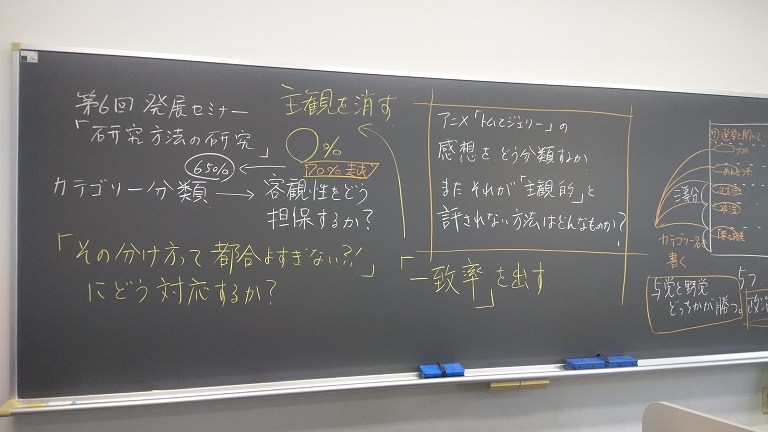 第6回 発展セミナー
「研究方法の研究」
カテゴリー分類 → 客観性をどう
担保するか?
65%
○%
70%
主観を消す
「その分け方って都合よすぎない?!」
にどう対応するか?
「一致率」を出す
アニメ「トムとジェリー」の
感想を、どう分類するか
また それが「主観的」と
評されない方法はどんなものか?
カテゴリー名を
書く
与党と野党
どっちが勝つ。